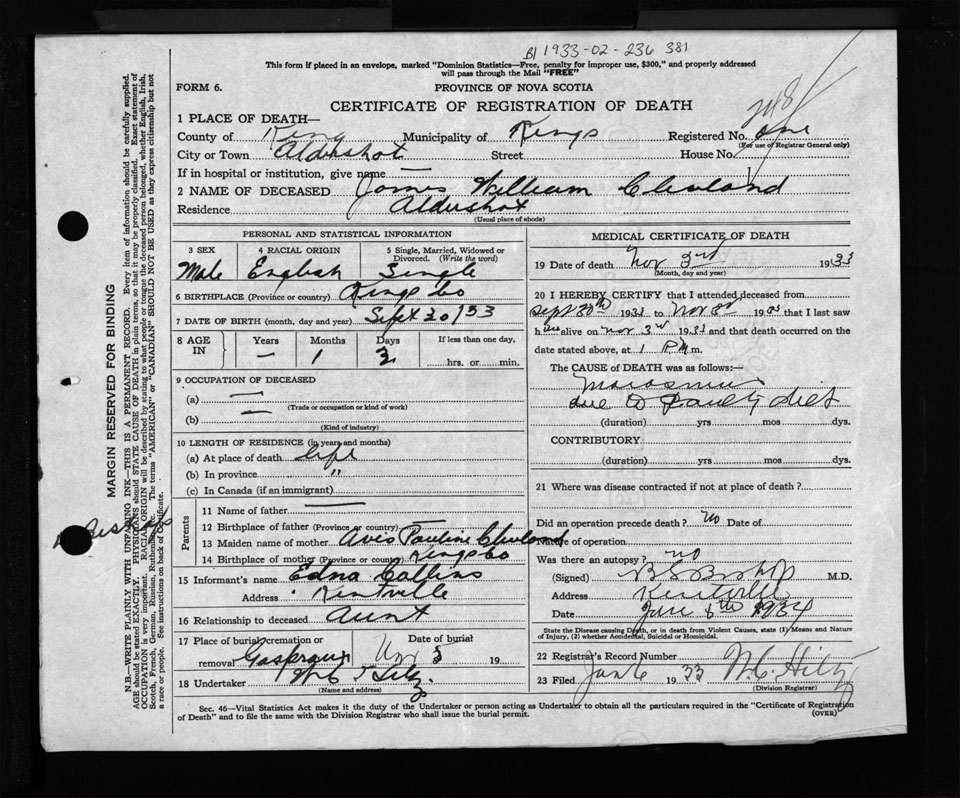 1933-02-236 381
This form if placed in an envelope, marked "Dominion Statistics—Free, penalty for improper use, $300," and properly addressed
will pass through the Mail "FREE"
FORM 6. PROVINCE OF NOVA SCOTIA
CERTIFICATE OF REGISTRATION OF DEATH
1 PLACE OF DEATH—
County of Kings Municipality of Kings Registered No. One
(For use of Registrar General only)
City or Town Aldershot Street House No.
If in hospital or institution, give name —
2 NAME OF DECEASED James William Cleveland
Residence Aldershot
(Usual place of abode)
PERSONAL AND STATISTICAL INFORMATION
3 SEX 4 RACIAL ORIGIN 5 Single, Married, Widowed or
Divorced. (Write the word)
Male English Single
6 BIRTHPLACE (Province or country) Kings Co
7 DATE OF BIRTH (month, day and year) Sept 30/33
8 AGE IN Years Months Days If less than one day,
— 1 3 hrs. or min.
9 OCCUPATION OF DECEASED
(a) —
(Trade or occupation or kind of work)
(b) —
(Kind of industry)
10 LENGTH OF RESIDENCE (in years and months)
(a) At place of death life
(b) In province "
(c) In Canada (if an immigrant)
Parents
11 Name of father —
12 Birthplace of father (Province or country) —
13 Maiden name of mother Avis Pauline Cleveland
14 Birthplace of mother (Province or country) Kings Co
15 Informant's name Edna Collins
Address Kentville
16 Relationship to deceased Aunt
17 Place of burial, cremation or Date of burial
removal Gaspereaux Nov 5 19
18 Undertaker W C Hiltz
(Name and address)
MEDICAL CERTIFICATE OF DEATH
19 Date of death Nov 3rd 1933
(Month, day and year)
20 I HEREBY CERTIFY that I attended deceased from
Sept 30th 1933 to Nov 3rd 19 that I last saw
h alive on Nov 3rd 1933 and that death occurred on
date stated above, at 1 P.M m.
The CAUSE OF DEATH was as follows:—
Marasmus
due to faulty diet
(duration) yrs mos dys.
CONTRIBUTORY
(duration) yrs mos dys.
21 Where was disease contracted if not at place of death?
Did an operation precede death? no Date of
Nature of operation
Was there an autopsy? no
(Signed) B S Bishop M.D.
Address Kentville
Date Jan 1934
State the Disease causing Death, or in death from Violent Causes, state (1) Means and Nature
of Injury, (2) whether Accidental, Suicidal or Homicidal.
22 Registrar's Record Number
23 Filed Jan 6 1933 W. C. Hiltz
(Division Registrar)
Sec. 46—Vital Statistics Act makes it the duty of the Undertaker or person acting as Undertaker to obtain all the particulars required in the "Certificate of Registration
of Death" and to file the same with the Division Registrar who shall issue the burial permit. (OVER)
MARGIN RESERVED FOR BINDING
N.B.—WRITE PLAINLY WITH UNFADING INK—THIS IS A PERMANENT RECORD. Every item of information should be carefully supplied.
AGE should be stated EXACTLY. PHYSICIANS should STATE CAUSE OF DEATH in plain terms, so that it may be properly classified. Exact statement of
OCCUPATION is very important. RACIAL ORIGIN will be described by stating to what people or tongue the deceased person belonged, whether English, Irish,
Scotch, French, German, Russian, Ruthenian, etc. The terms "AMERICAN" or "CANADIAN" SHOULD NOT BE USED as they express citizenship but not
a race or people. See instructions on back of Certificate.